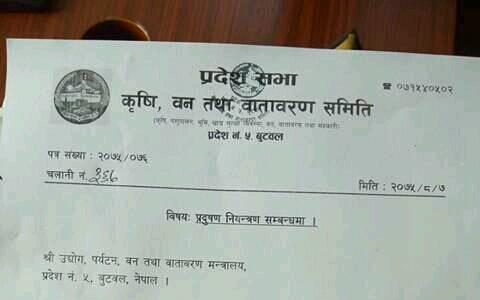 प्रदेश सभा
☎ ०७१५४०५०२
कृषि, वन तथा वातावरण समिति
प्रदेश नं. ५ बुटवल
पत्र संख्या : २०७५/०७६
चलानी नं. ३६७
मिति : २०७५/८/७
विषयः प्रदुषण नियन्त्रण सम्बन्धमा ।
श्री उद्योग, पर्यटन, वन तथा वातावरण मन्त्रालय,
प्रदेश नं. ५, बुटवल, नेपाल ।